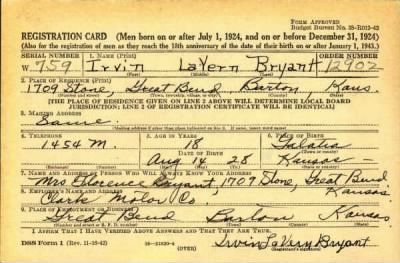 FORM APPROVED
Budget Bureau No. 33-R012-42
REGISTRATION CARD (Men born on or after July 1, 1924, and on or before December 31, 1924)
(Also for the registration of men as they reach the 18th anniversary of the date of their birth on or after January 1, 1943.)
SERIAL NUMBER 1. NAME (Print) ORDER NUMBER
W 759 Irvin LaVern Bryant 12902
(First) (Middle) (Last)
2. PLACE OF RESIDENCE (Print)
1709 Stone, Great Bend, Barton, Kans.
(Number and street) (Town, township, village, or city) (County) (State)
[THE PLACE OF RESIDENCE GIVEN ON LINE 2 ABOVE WILL DETERMINE LOCAL BOARD
JURISDICTION; LINE 2 OF REGISTRATION CERTIFICATE WILL BE IDENTICAL]
3. MAILING ADDRESS
Same
[Mailing address if other than place indicated on line 2. If same, insert word same]
4. TELEPHONE 5. AGE IN YEARS 6. PLACE OF BIRTH
1454 M. 18 Galatia
DATE OF BIRTH (Town or county)
Aug 14 28 Kansas
(Mo.) (Day) (Yr.) (State or country)
7. NAME AND ADDRESS OF PERSON WHO WILL ALWAYS KNOW YOUR ADDRESS
Mrs Florence Bryant, 1709 Stone, Great Bend
Kansas
8. EMPLOYER'S NAME AND ADDRESS
Clark Motor Co.
9. PLACE OF EMPLOYMENT OR BUSINESS
Great Bend Barton Kansas
(Number and street or R. F. D. number) (Town) (County) (State)
I AFFIRM THAT I HAVE VERIFIED ABOVE ANSWERS AND THAT THEY ARE TRUE.
DSS Form 1 (Rev. 11-16-42) 16-21630-4
(OVER) Irvin LaVern Bryant